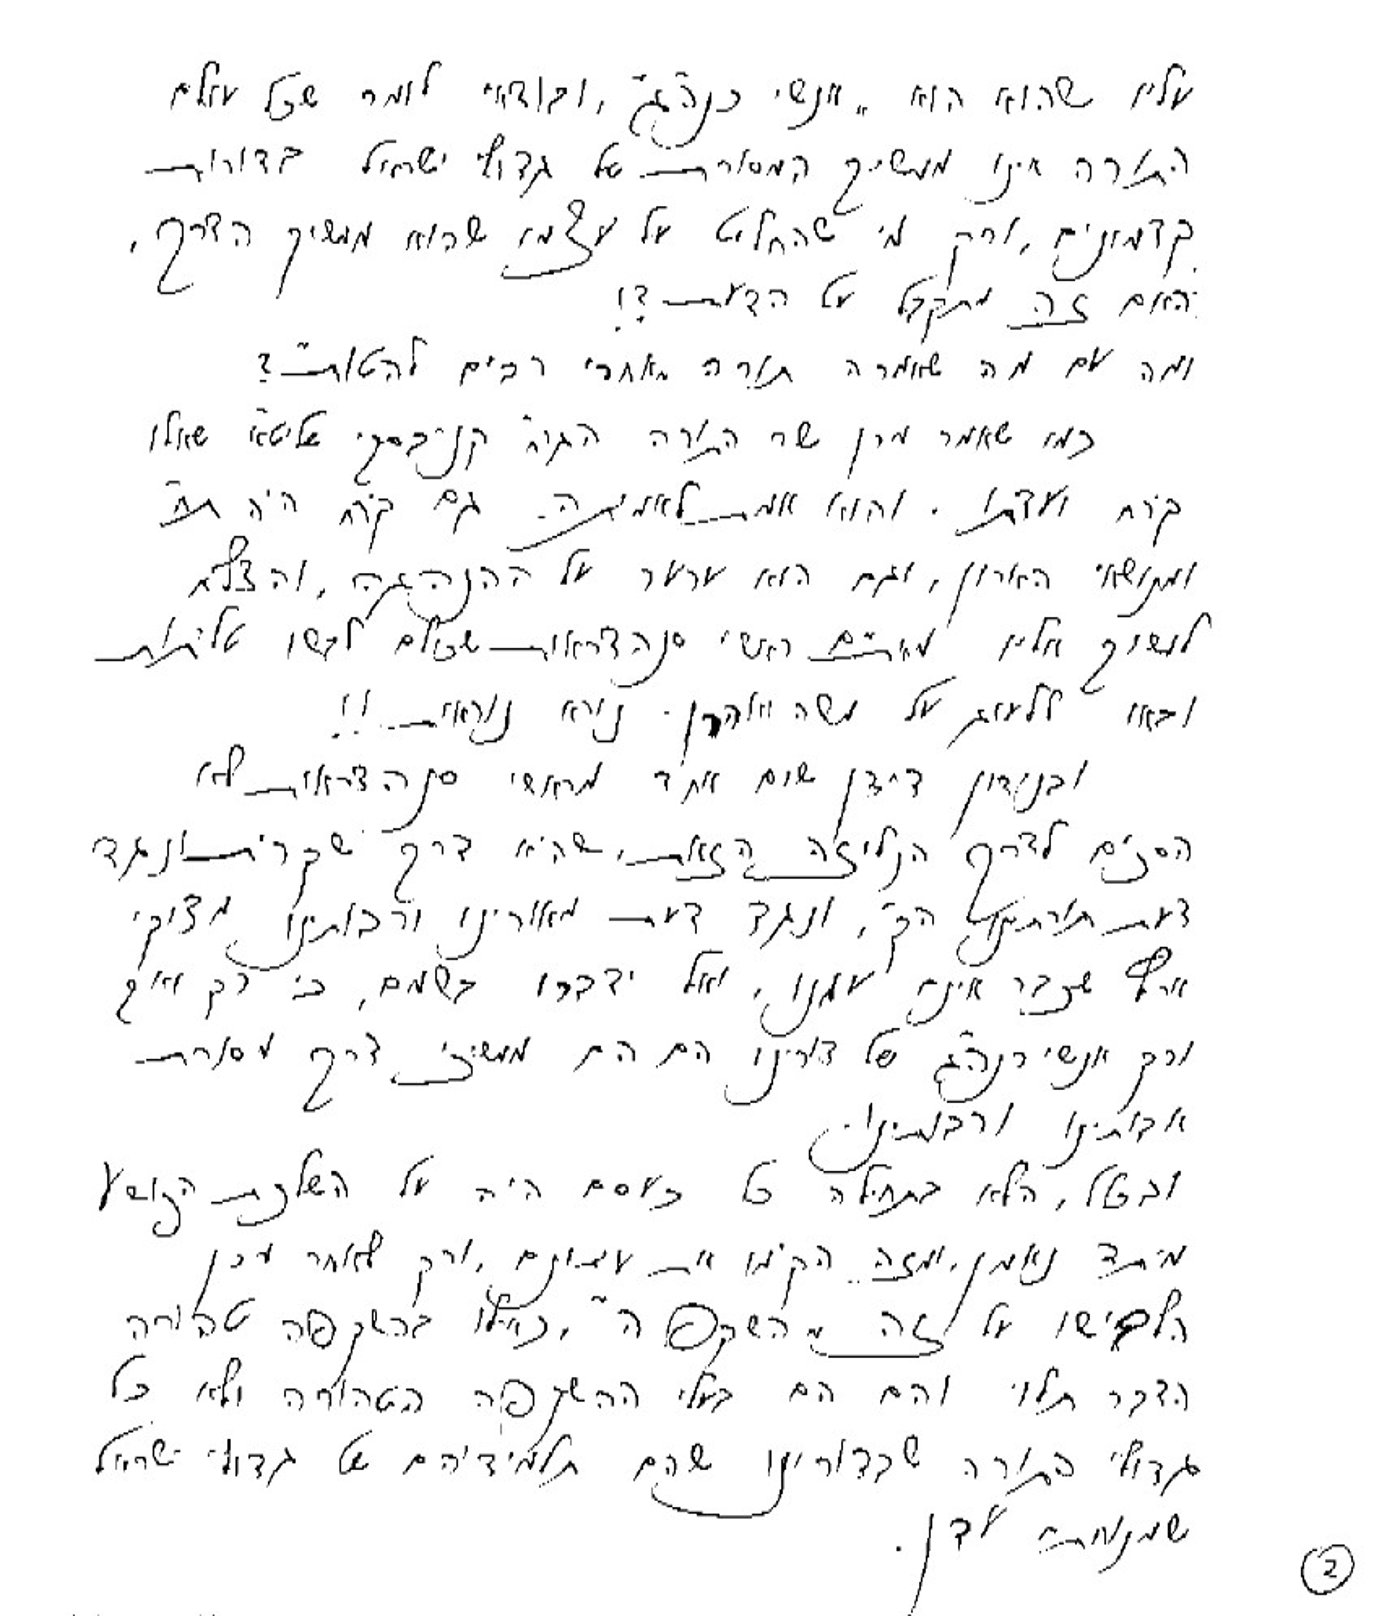 עליו שהוא הוא "אנשי כנה"ג", ובודאי לומר שכל עולם
התורה אינו ממשיך המסורת של גדולי ישראל בדורות
קדמונים, ורק מי שהחליט על עצמו שהוא ממשיך הדרך,
האם זה מתקבל על הדעת?!
ומה עם מה שאמרה תורה "אחרי רבים להטות"?
כמו שאמר מרן שר התורה הגר"ח קנייבסקי שליט"א שאלו
קרח ועדתו. והוא אמת לאמיתה. גם קרח היה ת"ח
ומנושאי הארון, וגם הוא ערער על ההנהגה, והצליח
למשוך אליו מאתים ראשי סנהדראות שכולם לבשו טליתות
ובאו ללעוג על משה ואהרן. נורא נוראות!!
ובנידון דידן שום אחד מראשי סנהדראות לא
הסכים לדרך הנלוזה הזאת, שהיא דרך שקרית ונגד
דעת תורתינו הק', ונגד דעת מאורינו ורבותינו מצוקי
ארץ שכבר אינם עמנו, ואל ידברו בשמם, כי רק ואך
ורק אנשי כנה"ג של דורינו הם הם ממשיכי דרך מסורת
אבותינו ורבותינו.
ובכלל, הלא בתחילה כל כעסם היה על השלכת הנושע
מיתד נאמן, ומזה הקימו את עיתונם, ורק לאחר מכן
הלבישו על זה "השקפה", כאילו בהשקפה טהורה
הדבר תלוי והם הם בעלי ההשקפה הטהורה ולא כל
גדולי התורה שבדורינו שהם תלמידיהם של גדולי ישראל
שמנוחתם עדן.
2